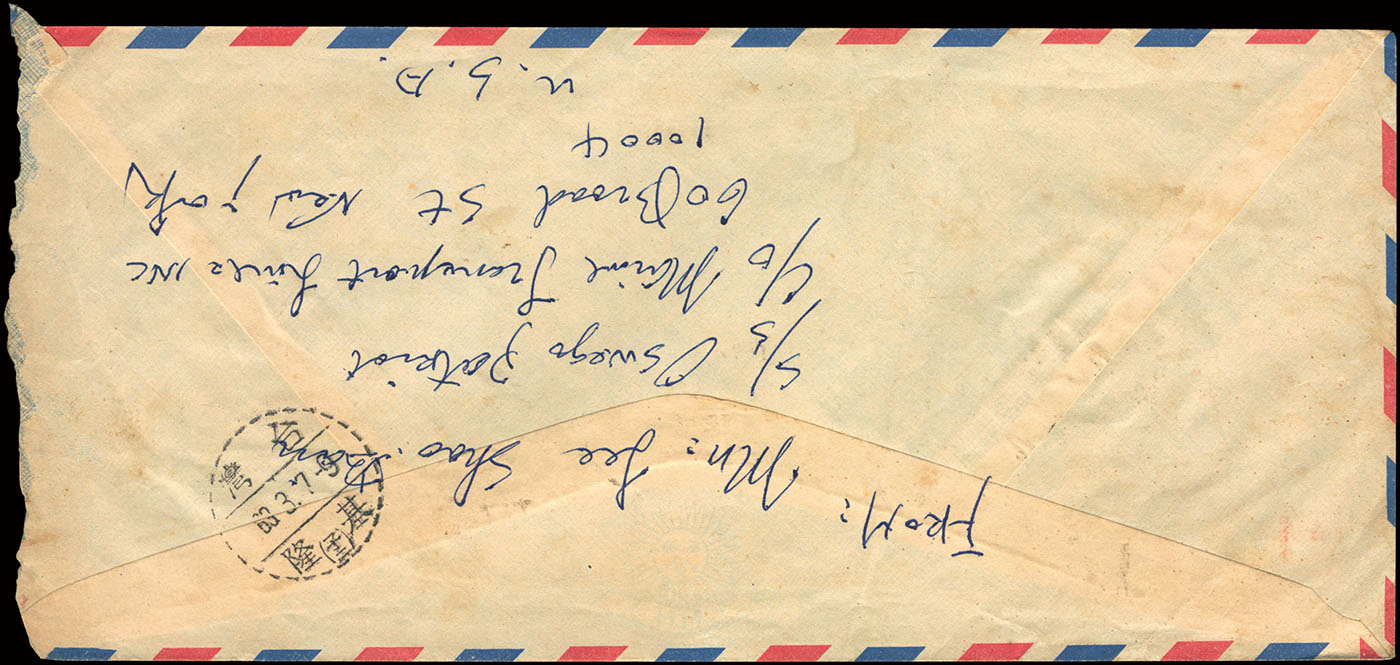 FROM: Mr: Lee Shao.
S/S Oswego patriot
C/O Marine Transport Lines INC
60 Broad St New york
10004
U.S.A.
台灣
基隆